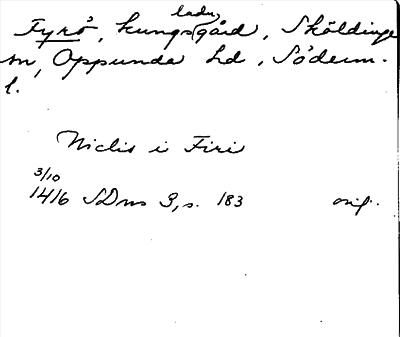 Fyrö, kungs(ladu)gård, Sköldinge
sn, Oppunda hd, Söderm.
l.
Niclis i Firi
3/10
1416 SDns 3, s. 183 orig.